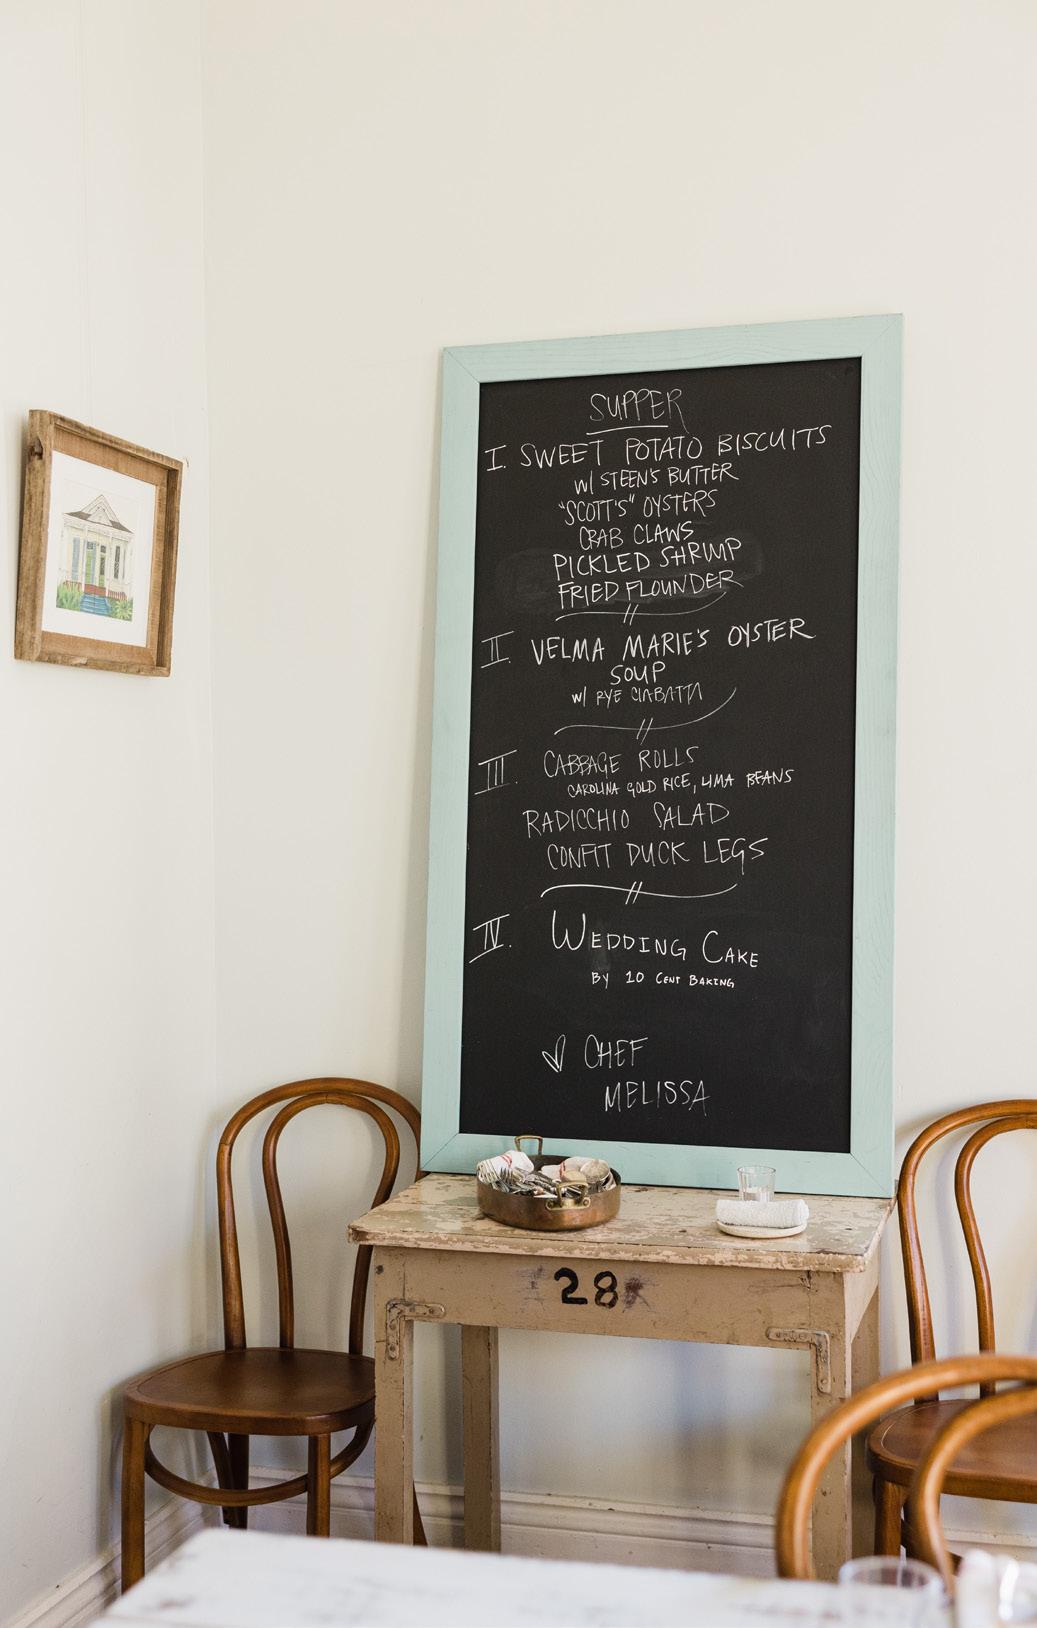 SUPPER
I. SWEET POTATO BISCUITS
w/ STEEN'S BUTTER
"SCOTT'S" OYSTERS
CRAB CLAWS
PICKLED SHRIMP
FRIED FLOUNDER
II. VELMA MARIE'S OYSTER
SOUP
w/ RYE CIABATTA
III. CABBAGE ROLLS
CAROLINA GOLD RICE, LIMA BEANS
RADICCHIO SALAD
CONFIT DUCK LEGS
IV. WEDDING CAKE
BY 10 CENT BAKING
♡ CHEF
MELISSA
28